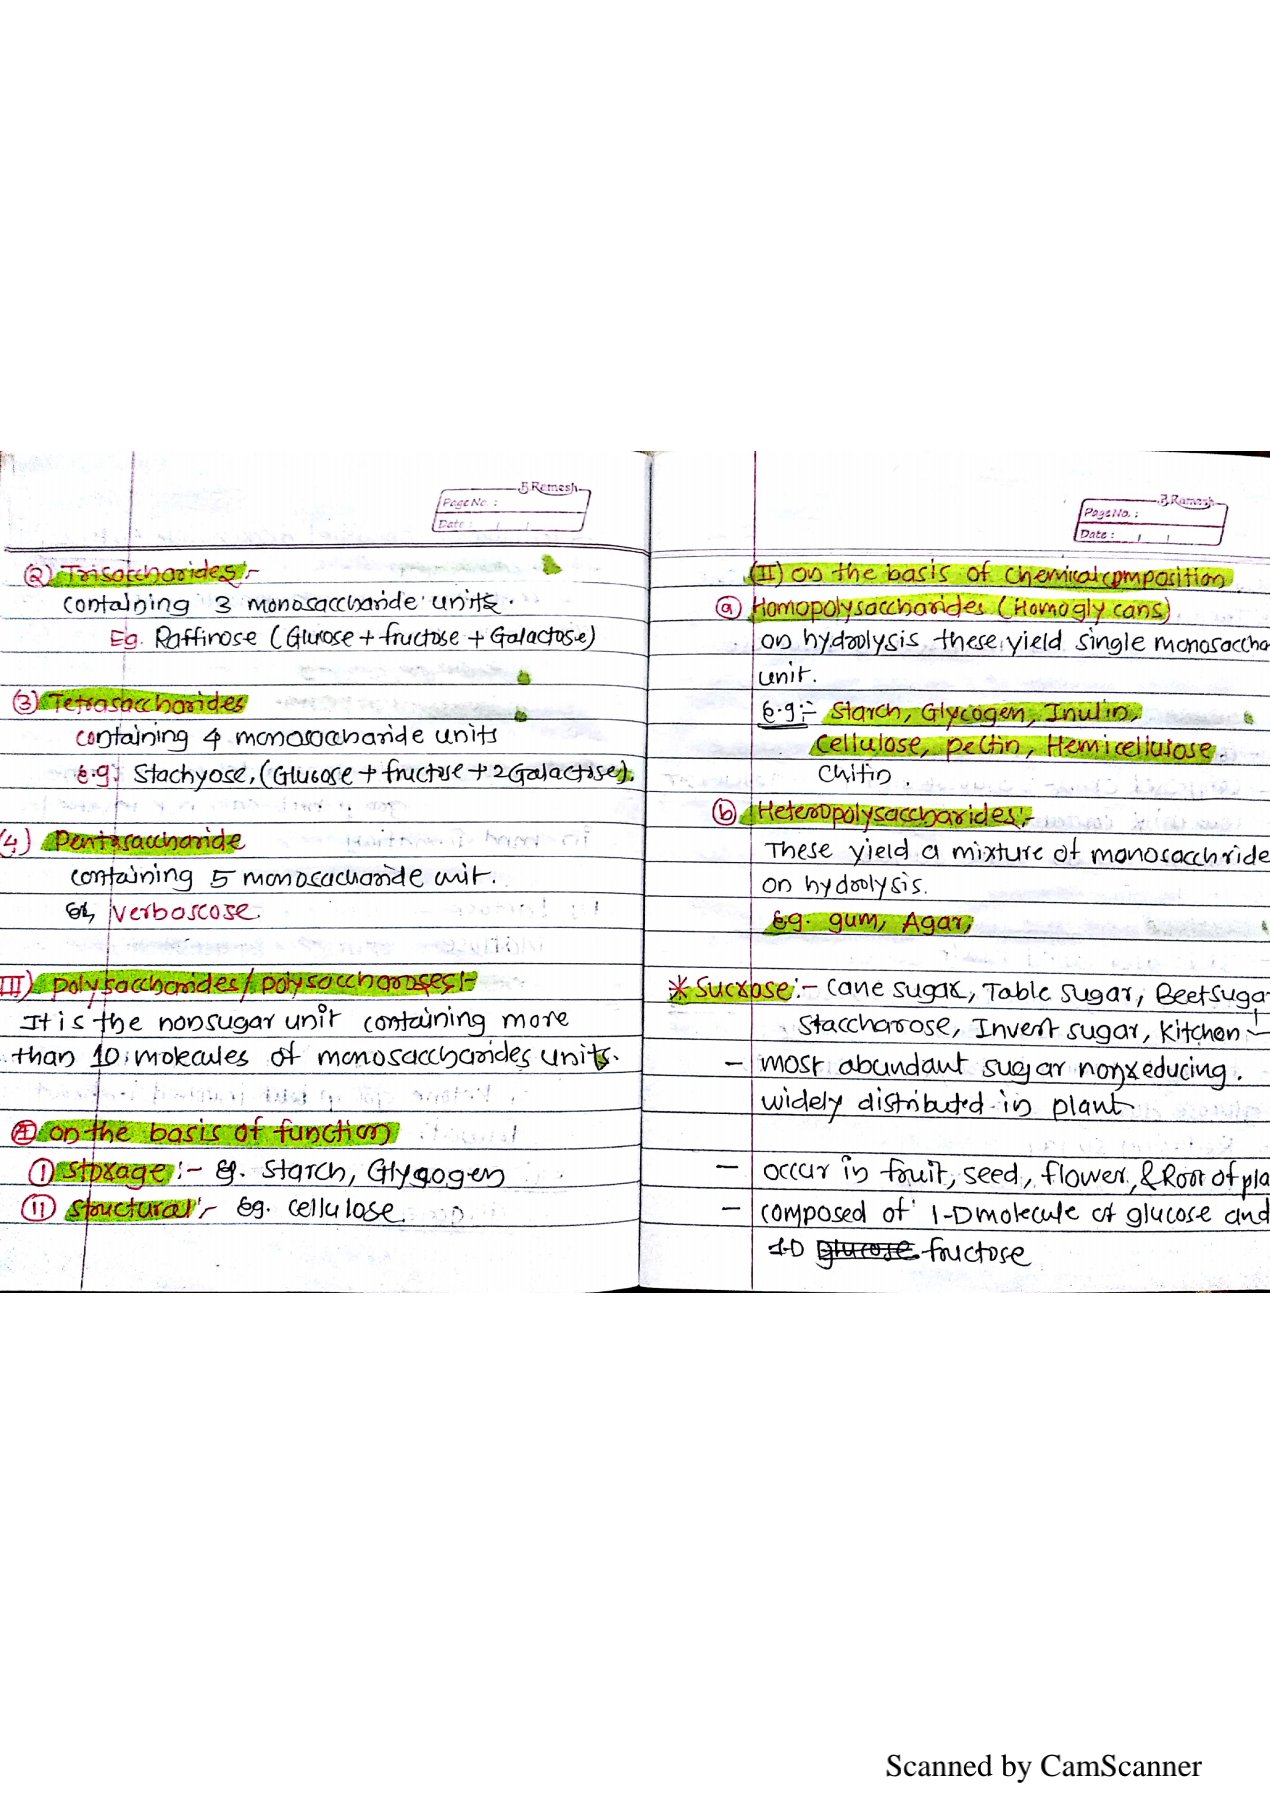 S.Ramesh
Page No. :
Date : / /
(2) Trisaccharides :-
containing 3 monosaccharide units.
Eg. Raffinose (Glucose + fructose + Galactose)
(3) Tetrasaccharides
containing 4 monosaccharide units
e.g: Stachyose, (Glucose + fructose + 2 Galactose).
(4) Pentasaccharide
containing 5 monosaccharide unit.
Verboscose.
III) polysaccharides/polysaccharoses:-
It is the nonsugar unit containing more
than 10 molecules of monosaccharides units.
(I) on the basis of function
(I) storage :- Eg. Starch, Glycogen
(II) structural :- Eg. cellulose.
Ramesh
Page No. :
Date : / /
(II) on the basis of chemical composition
(a) Homopolysaccharides (Homoglycans)
on hydrolysis these yield single monosaccha
unit.
e.g :- Starch, Glycogen, Inulin,
cellulose, pectin, Hemicellulose
chitin.
(b) Heteropolysaccharides :-
These yield a mixture of monosacchride
on hydrolysis.
Eg. gum, Agar,
* Sucrose :- cane sugar, Table sugar, Beet suga
staccharose, Invert sugar, kitchen
- most abundant sugar nonreducing.
widely distributed in plant
- occur in fruit, seed, flower, & Root of pla
- composed of 1-D molecule of glucose and
1-D glucose fructose
Scanned by CamScanner